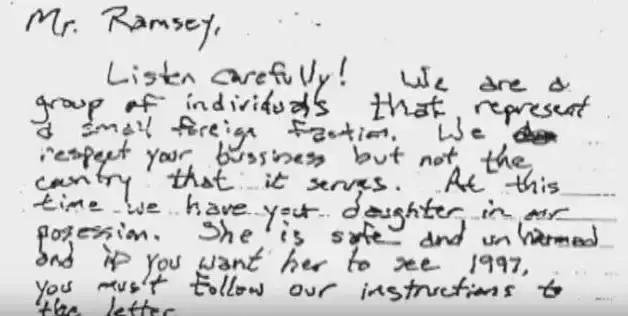 Mr. Ramsey,
Listen carefully! We are a
group of individuals that represent
a small foreign faction. We
respect your bussiness but not the
country that it serves. At this
time we have your daughter in our
posession. She is safe and unharmed
and if you want her to see 1997,
you must follow our instructions to
the letter.